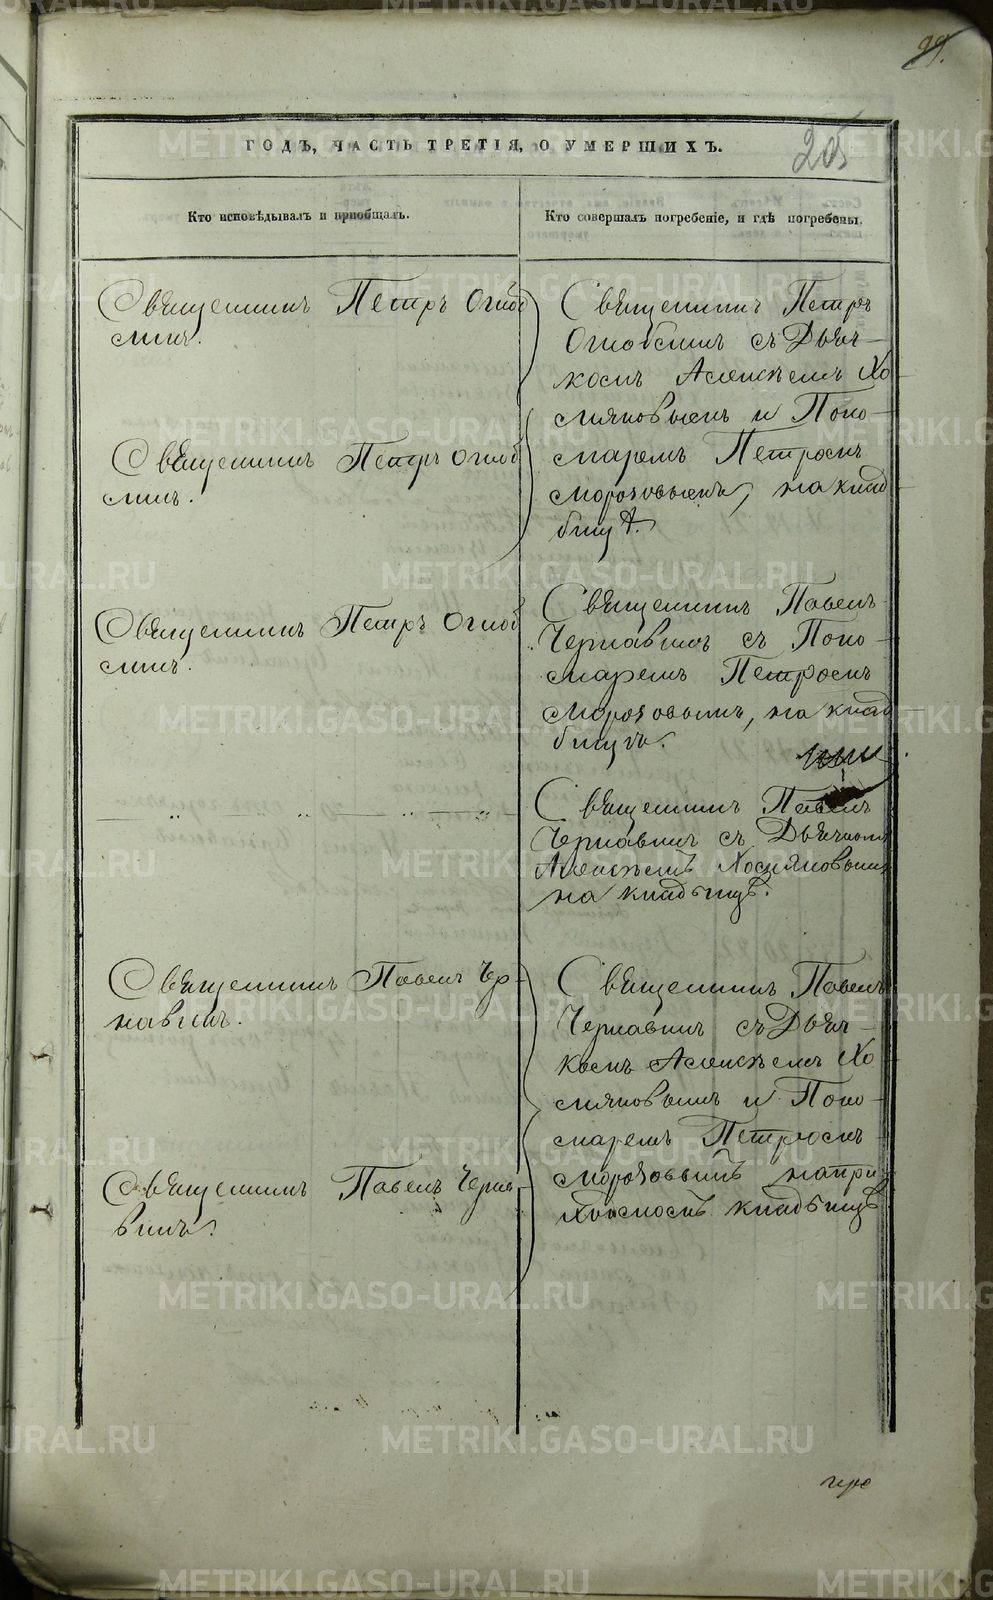 99.
205
ГОДЪ, ЧАСТЬ ТРЕТІЯ, О УМЕРШИХЪ.
Кто исповѣдывалъ и пріобщалъ.
Кто совершалъ погребеніе, и гдѣ погребены.
Священникъ Петръ Оглоб
линъ.
Священникъ Петръ
Оглоблинъ съ Дьяч-
комъ Алексѣемъ Хо
мяковымъ и Поно-
маремъ Петромъ
Морозовымъ, на клад
бищѣ.
Священникъ Петръ Оглоб
линъ.
Священникъ Петръ Оглоб
линъ.
Священникъ Павелъ
Чернавинъ съ Поно-
маремъ Петромъ
Морозовымъ, на клад
бищѣ.
— „ — „ — „ —
Священникъ Павелъ
Чернавинъ съ Дьячкомъ
Алексѣемъ Хомяковымъ
на кладбищѣ.
Священникъ Павелъ Чер
навинъ.
Священникъ Павелъ
Чернавинъ съ Дьяч-
комъ Алексѣемъ Хо
мяковымъ и Поно-
маремъ Петромъ
Морозовымъ на при
ходскомъ кладбищѣ
Священникъ Павелъ Черна
винъ.
METRIKI.GASO-URAL.RU